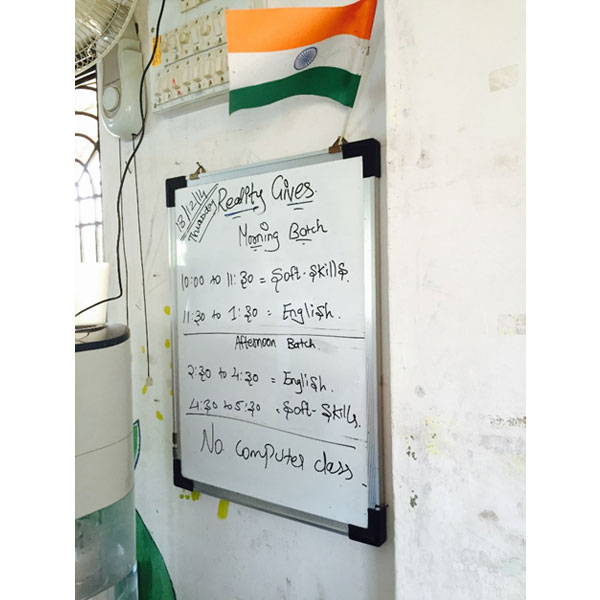 18/12/14
Thursday
Reality Gives.
Morning Batch
10:00 to 11:30 = Soft-Skills.
11:30 to 1:30 = English.
Afternoon Batch.
2:30 to 4:30 = English.
4:30 to 5:30 = Soft-Skills.
No computer class